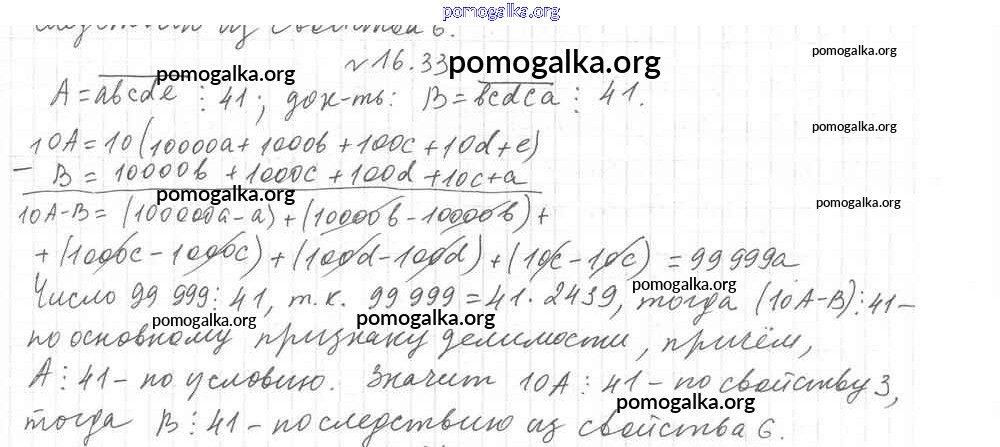 pomogalka.org
следствии из свойства 6.
№16.33 pomogalka.org
pomogalka.org
A = abcde ⋮ 41; док-ть: B = bcdca ⋮ 41.
pomogalka.org
pomogalka.org
10A = 10(10000a + 1000b + 100c + 10d + e)
− B = 10000b + 1000c + 100d + 10c + a
pomogalka.org
pomogalka.org
10A − B = (100000a − a) + (10000b − 10000b) +
+ (1000c − 1000c) + (100d − 100d) + (10c − 10c) = 99 999a
pomogalka.org
Число 99 999 ⋮ 41, т.к. 99 999 = 41 · 2439, тогда (10A − B) ⋮ 41 –
pomogalka.org pomogalka.org
по основному признаку делимости, причём,
A ⋮ 41 – по условию. Значит 10A ⋮ 41 – по свойству 3,
pomogalka.org
тогда B ⋮ 41 – по следствию из свойства 6.